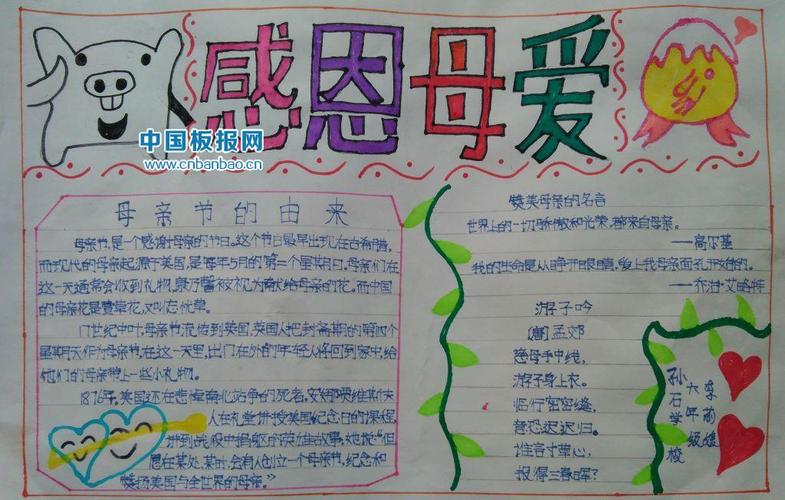 感恩母爱
中国板报网
www.cnbanbao.cn
母亲节的由来
母亲节，是一个感谢母亲的节日。这个节日最早出现在古希腊，
而现代的母亲起源于美国，是每年5月的第一个星期日。母亲们在
这一天通常会收到礼物，康乃馨被视为献给母亲的花。而中国
的母亲花是萱草花，又叫忘忧草。
17世纪中叶，母亲节流传到英国，英国人把封斋期的第四个
星期天作为母亲节。在这一天里，出门在外的年轻人将回到家中，给
他们的母亲带上一些小礼物。
1876年，美国还在悲悼南北战争的死者，安娜·贾维斯夫
人在礼堂讲授美国纪念日的课程，
讲到战役中捐躯的英雄故事，她说“但
愿在某处，某时，会有人创立一个母亲节，纪念和
赞扬美国与全世界的母亲。”
赞美母亲的名言
世界上的一切骄傲和光荣，都来自母亲。
——高尔基
我的生命是从睁开眼睛，爱上我母亲面孔开始的。
——乔治·艾略特
游子吟
(唐)孟郊
慈母手中线，
游子身上衣。
临行密密缝，
意恐迟迟归。
谁言寸草心，
报得三春晖？
孙石学校
六年级
李